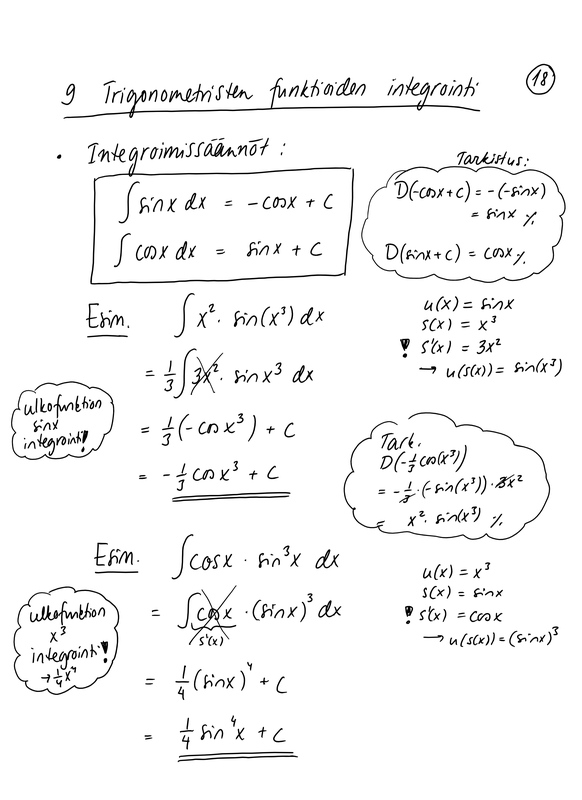 18
9 Trigonometristen funktioiden integrointi
• Integroimissäännöt:
∫ sinx dx = -cosx + C
∫ cosx dx = sinx + C
Tarkistus:
D(-cosx+c) = -(-sinx)
= sinx %.
D(sinx+c) = cosx %.
Esim. ∫ x² · sin(x³) dx
= 1/3 ∫ 3x² · sin x³ dx
= 1/3 (-cos x³) + C
= -1/3 cos x³ + C
u(x) = sinx
s(x) = x³
! s'(x) = 3x²
→ u(s(x)) = sin(x³)
ulkofunktion
sinx
integrointi!
Tark.
D(-1/3 cos(x³))
= -1/3 · (-sin(x³)) · 3x²
= x² · sin(x³) %.
Esim. ∫ cosx · sin³x dx
= ∫ cosx · (sinx)³ dx
s'(x)
= 1/4 (sinx)⁴ + C
= 1/4 sin⁴x + C
u(x) = x³
s(x) = sinx
! s'(x) = cosx
→ u(s(x)) = (sinx)³
ulkofunktion
x³
integrointi!
→ 1/4 x⁴